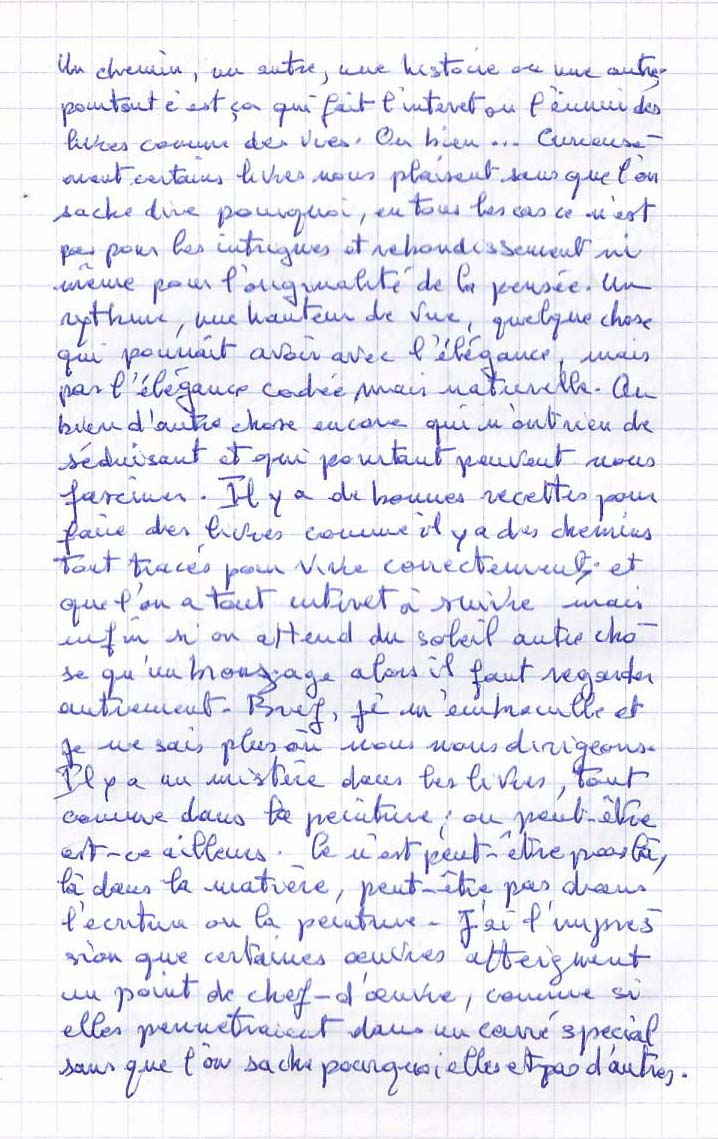 Un chemin, un autre, une histoire ou une autre,
pourtant c'est ça qui fait l'interet ou l'ennui des
livres comme des vies. Ou bien ... Curieuse-
ment certains livres nous plaisent sans que l'on
sache dire pourquoi, en tous les cas ce n'est
pas pour les intrigues et rebondissement ni
même pour l'originalité de la pensée. Un
rythme, une hauteur de vue, quelque chose
qui pourrait avoir avec l'élégance, mais
pas l'élégance codée mais naturelle. Ou
bien d'autre chose encore qui n'ont rien de
séduisant et qui pourtant peuvent nous
fasciner. Il y a de bonnes recettes pour
faire des livres comme il y a des chemins
tout tracés pour vivre correctement, et
que l'on a tout interet à suivre mais
enfin si on attend du soleil autre cho-
se qu'un bronzage alors il faut regarder
autrement. Bref, je m'embrouille et
je ne sais plus où nous nous dirigeons.
Il y a un mistère dans les livres, tout
comme dans la peinture, ou peut-être
est-ce ailleurs. Ce n'est peut-être pas là,
là dans la matière, peut-être pas dans
l'ecriture ou la peinture. J'ai l'impres-
sion que certaines œuvres atteignent
un point de chef-d'œuvre, comme si
elles penetraient dans un carré spécial
sans que l'on sache pourquoi elles et pas d'autres.